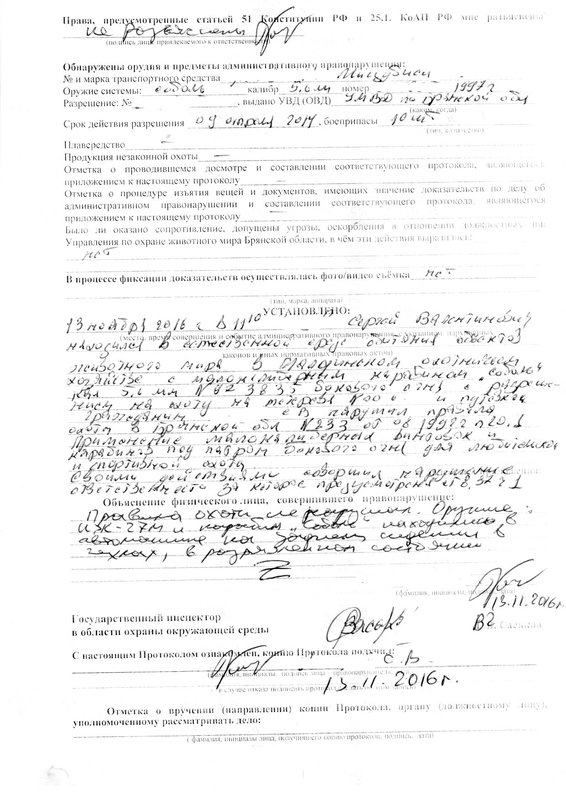 Права, предусмотренные статьей 51 Конституции РФ и 25.1. КоАП РФ мне разъяснены
не разъяснены
(подпись лица, привлекаемого к ответственности)
Обнаружены орудия и предметы административного правонарушения:
№ и марка транспортного средства Мицубиси
Оружие системы: соболь калибр 5,6 мм номер 1997г
Разрешение: № , выдано УВД (ОВД) УМВД по Брянской обл
(каким, когда)
Срок действия разрешения 09 апреля , боеприпасы 10 шт
(тип, количество)
Плавсредство —
Продукция незаконной охоты —
Отметка о проводившемся досмотре и составлении соответствующего протокола, являющегося
приложением к настоящему протоколу —
Отметка о процедуре изъятия вещей и документов, имеющих значение доказательств по делу об
административном правонарушении и составлении соответствующего протокола, являющегося
приложением к настоящему протоколу
Было ли оказано сопротивление, допущены угрозы, оскорбления в отношении должностных лиц
Управления по охране животного мира Брянской области, в чём эти действия выразились:
нет
В процессе фиксации доказательств осуществлялась фото/видео съёмка нет
(тип, марка, аппарата)
УСТАНОВЛЕНО:
13 ноября 2016 г в 11 10 Сергей Валентинович
(место, время совершения и событие административного правонарушения
находился в естественной среде обитания объектов
законов и иных нормативных правовых актов)
животного мира в охотничьем
хозяйстве с малокалиберным карабином "соболь"
кал 5.6 мм бокового огня с разреше-
нием на охоту на и путевкой
Гражданин С В нарушил правила
охоты в Брянской обл №233 от 08 1997г п 20.1
Применение малокалиберных винтовок и
карабинов под патрон бокового огня для любительской
и спортивной охоты
Своими действиями совершил нарушение
ответственность за которое предусмотрена ст 8.37 ч 1
Объяснение физического лица, совершившего правонарушение:
Правила охоты не нарушал. Оружие
ИЖ-27М и карабин "Соболь" находились в
автомашине на заднем сидении в
чехлах, в разряженном состоянии
Z
13.11.2016г.
Государственный инспектор
в области охраны окружающей среды
С настоящим Протоколом ознакомлен, копию Протокола получил:
С.В.
13.11.2016г.
Отметка о вручении (направлении) копии Протокола, органу (должностному лицу),
уполномоченному рассматривать дело:
( фамилия, инициалы лица, получившего копию протокола, подпись, дата)